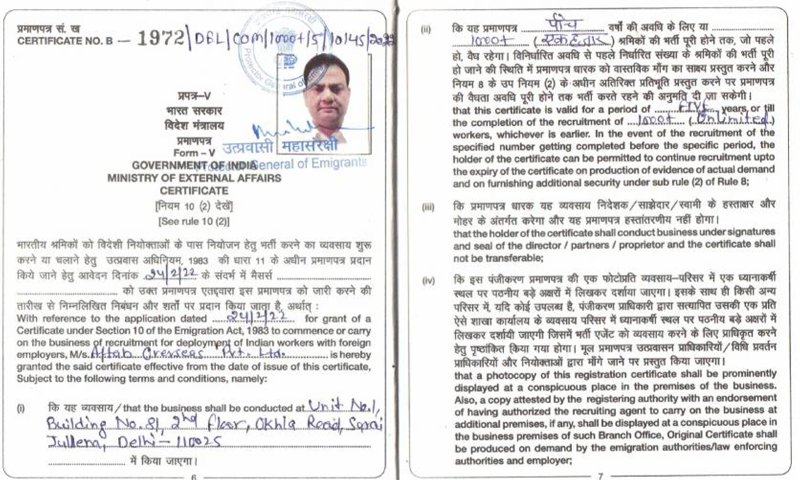 प्रमाणपत्र सं. ख
CERTIFICATE NO. B – 1972/DEL/COM/1000+/5/10145/2022
प्रपत्र–V
भारत सरकार
विदेश मंत्रालय
प्रमाणपत्र
Form – V
उत्प्रवासी महासंरक्षी
GOVERNMENT OF INDIA
General of Emigrants
MINISTRY OF EXTERNAL AFFAIRS
CERTIFICATE
[नियम 10 (2) देखें]
[See rule 10 (2)]
भारतीय श्रमिकों को विदेशी नियोक्ताओं के पास नियोजन हेतु भर्ती करने का व्यवसाय शुरू
करने या चलाने हेतु उत्प्रवास अधिनियम, 1983 की धारा 11 के अधीन प्रमाणपत्र प्रदान
किये जाने हेतु आवेदन दिनांक 24/2/22 के संदर्भ में मैसर्स
को उक्त प्रमाणपत्र एतद्द्वारा इस प्रमाणपत्र को जारी करने की
तारीख से निम्नलिखित निबंधन और शर्तों पर प्रदान किया जाता है, अर्थात् :
With reference to the application dated 24/2/22 for grant of a
Certificate under Section 10 of the Emigration Act, 1983 to commence or carry
on the business of recruitment for deployment of Indian workers with foreign
employers, M/s. Aftab Overseas Pvt. Ltd. is hereby
granted the said certificate effective from the date of issue of this certificate,
Subject to the following terms and conditions, namely:
(i) कि यह व्यवसाय/that the business shall be conducted at Unit No.1,
Building No. 81, 2nd floor, Okhla Road, Sarai
Jullena, Delhi – 110025
में किया जाएगा।
6
(ii) कि यह प्रमाणपत्र पाँच वर्षों की अवधि के लिए या
1000+ श्रमिकों की भर्ती पूरी होने तक, जो पहले
हो, वैध रहेगा। विनिर्धारित अवधि से पहले निर्धारित संख्या के श्रमिकों की भर्ती पूरी
हो जाने की स्थिति में प्रमाणपत्र धारक को वास्तविक माँग का साक्ष्य प्रस्तुत करने और
नियम 8 के उप नियम (2) के अधीन अतिरिक्त प्रतिभूति प्रस्तुत करने पर प्रमाणपत्र
की वैधता अवधि पूरी होने तक भर्ती करते रहने की अनुमति दी जा सकेगी।
that this certificate is valid for a period of FIVE years, or till
the completion of the recruitment of 1000+ (Unlimited)
workers, whichever is earlier. In the event of the recruitment of the
specified number getting completed before the specific period, the
holder of the certificate can be permitted to continue recruitment upto
the expiry of the certificate on production of evidence of actual demand
and on furnishing additional security under sub rule (2) of Rule 8;
(iii) कि प्रमाणपत्र धारक यह व्यवसाय निदेशक/साझेदार/स्वामी के हस्ताक्षर और
मोहर के अंतर्गत करेगा और यह प्रमाणपत्र हस्तांतरणीय नहीं होगा।
that the holder of the certificate shall conduct business under signatures
and seal of the director / partners / proprietor and the certificate shall
not be transferable;
(iv) कि इस पंजीकरण प्रमाणपत्र की एक फोटोप्रति व्यवसाय-परिसर में एक ध्यानाकर्षी
स्थल पर पठनीय बड़े अक्षरों में लिखकर दर्शाया जाएगा। इसके साथ ही किसी अन्य
परिसर में, यदि कोई उपलब्ध है, पंजीकरण प्राधिकारी द्वारा सत्यापित उसकी एक प्रति
ऐसे शाखा कार्यालय के व्यवसाय परिसर में ध्यानाकर्षी स्थल पर पठनीय बड़े अक्षरों में
लिखकर दर्शायी जाएगी जिसमें भर्ती एजेंट को व्यवसाय करने के लिए प्राधिकृत करने
हेतु पृष्ठांकित किया गया होगा। मूल प्रमाणपत्र उत्प्रवासन प्राधिकारियों/विधि प्रवर्तन
प्राधिकारियों और नियोक्ताओं द्वारा माँगे जाने पर प्रस्तुत किया जाएगा।
that a photocopy of this registration certificate shall be prominently
displayed at a conspicuous place in the premises of the business.
Also, a copy attested by the registering authority with an endorsement
of having authorized the recruiting agent to carry on the business at
additional premises, if any, shall be displayed at a conspicuous place in
the business premises of such Branch Office, Original Certificate shall
be produced on demand by the emigration authorities/law enforcing
authorities and employer;
7